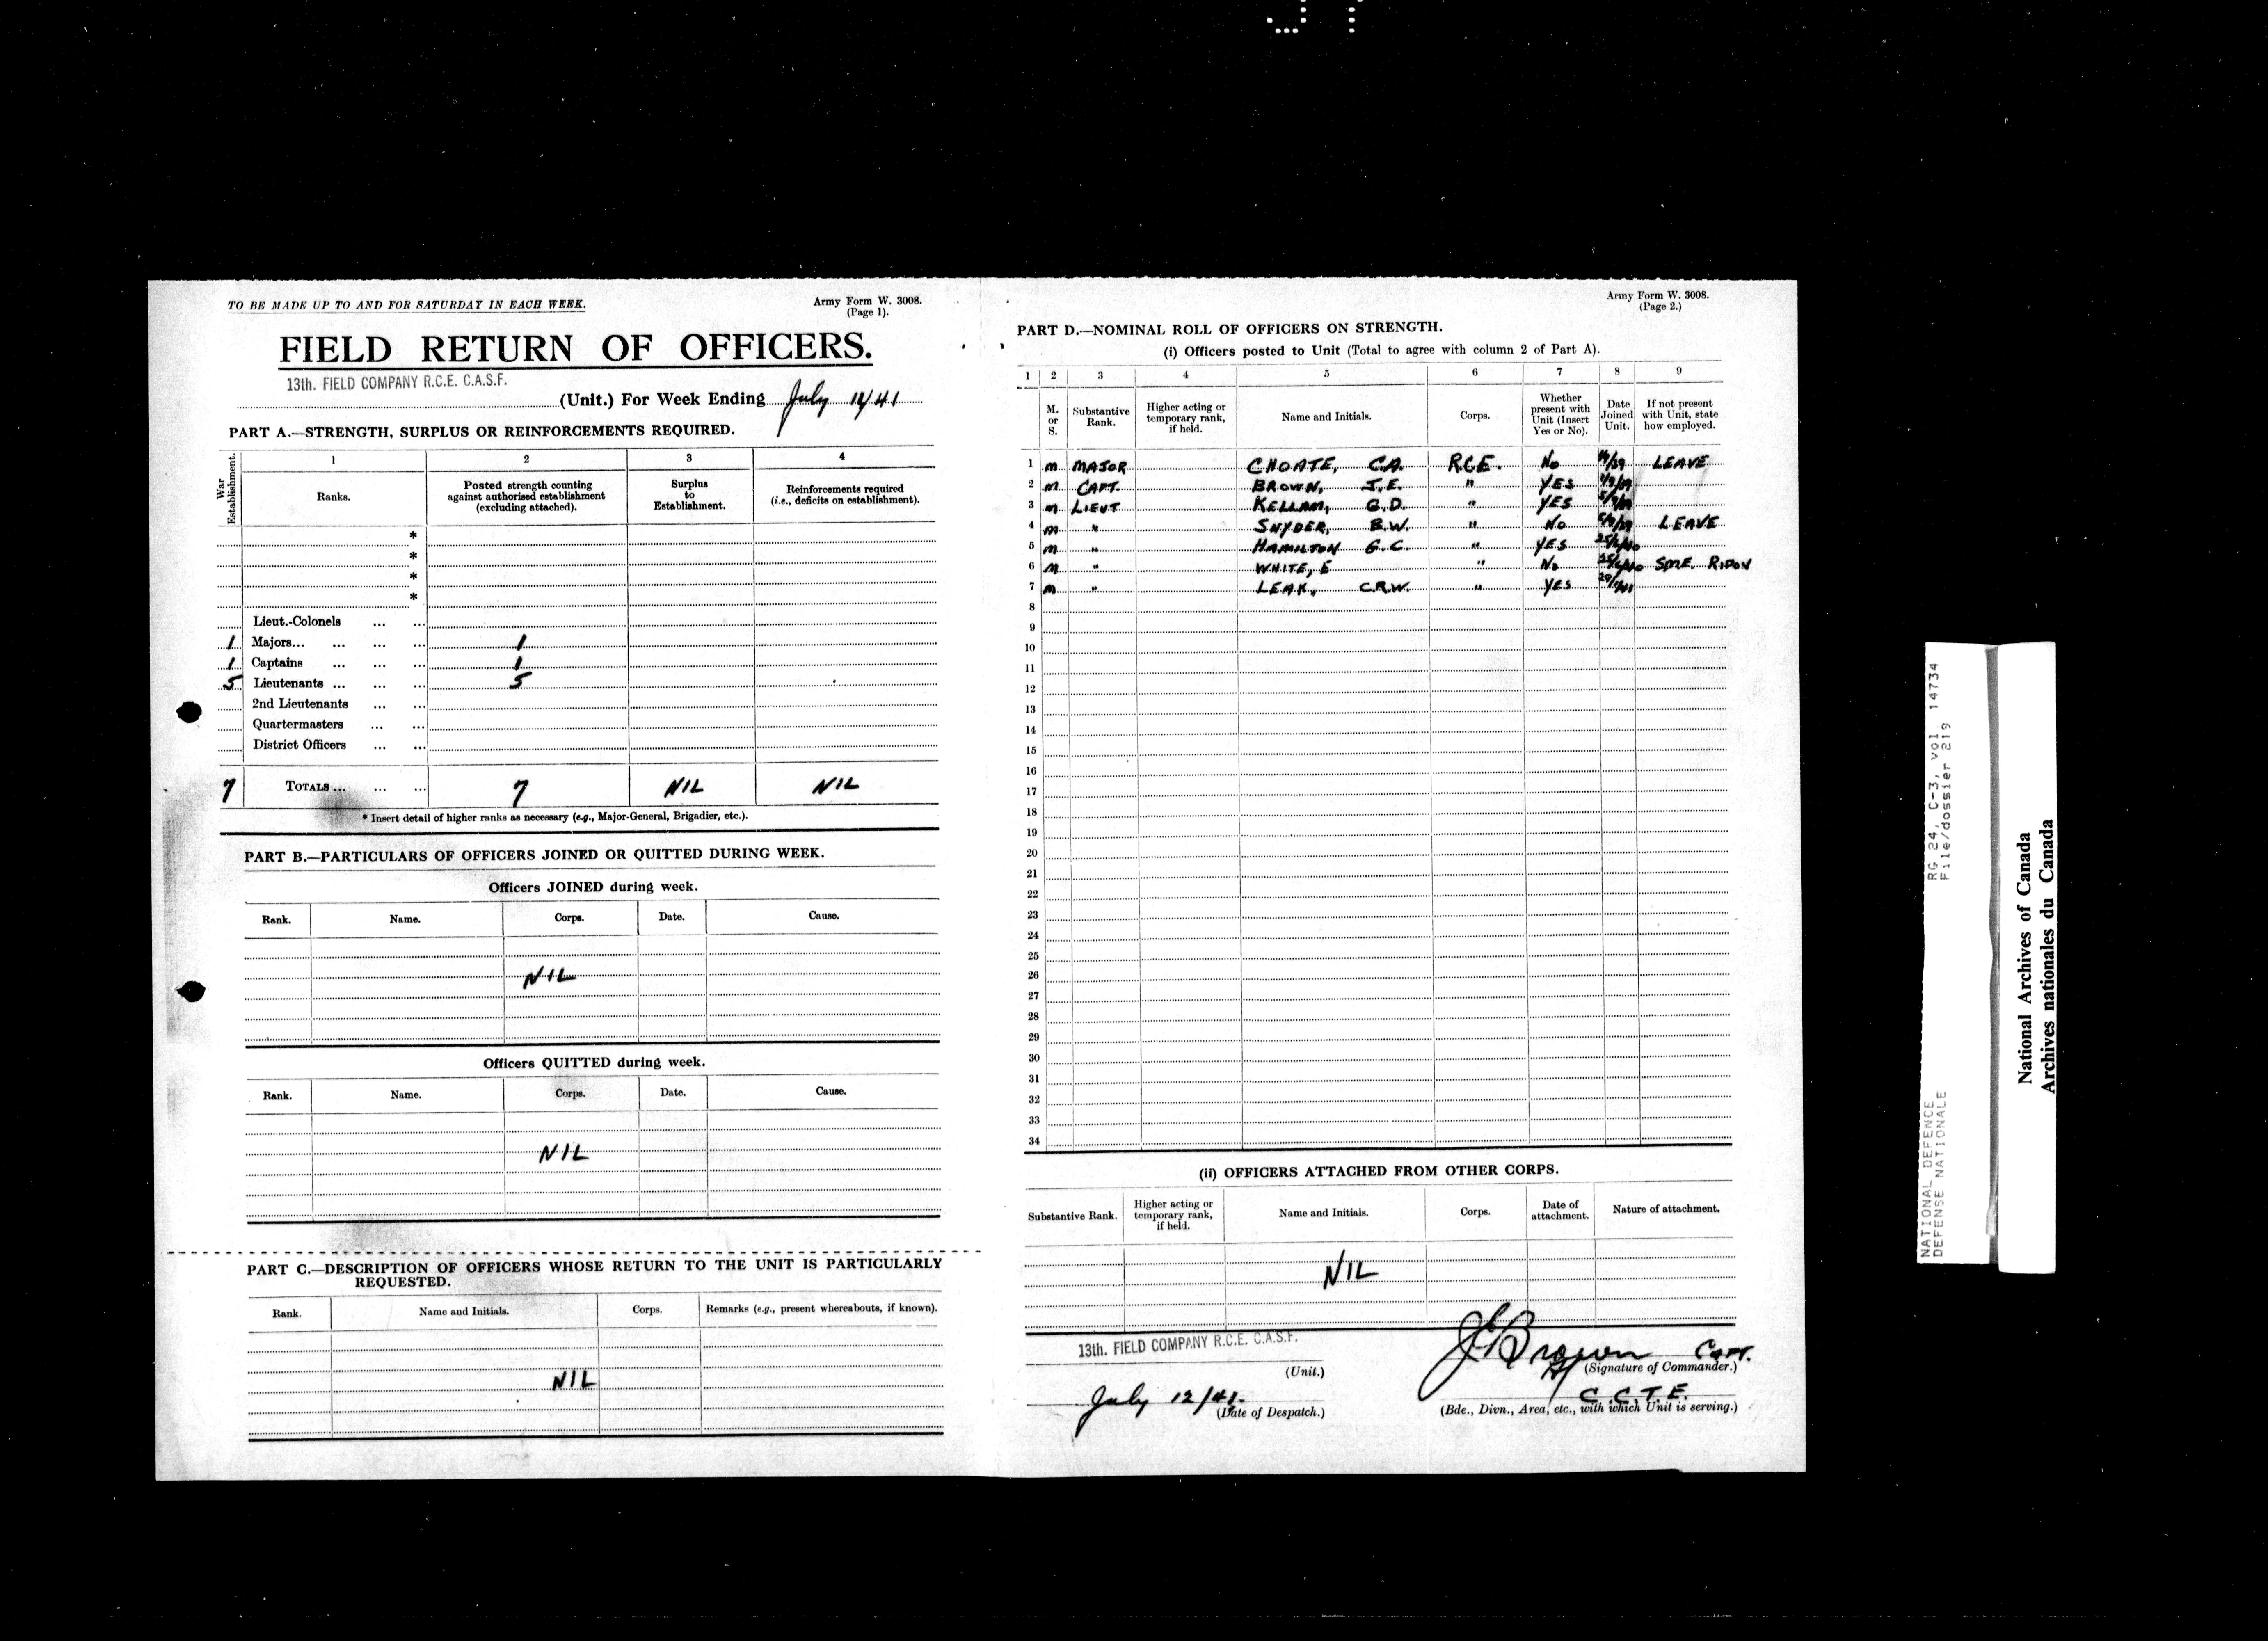 TO BE MADE UP TO AND FOR SATURDAY IN EACH WEEK.
Army Form W. 3008.
(Page 1).
FIELD RETURN OF OFFICERS.
13th. FIELD COMPANY R.C.E. C.A.S.F.
(Unit.) For Week Ending July /41
PART A.—STRENGTH, SURPLUS OR REINFORCEMENTS REQUIRED.
War Establishment.
1 2 3 4
Ranks.
Posted strength counting against authorised establishment (excluding attached).
Surplus to Establishment.
Reinforcements required (i.e., deficits on establishment).
*
*
*
*
Lieut.-Colonels ... ...
1 Majors... ... ... ... 1
1 Captains ... ... ... 1
5 Lieutenants ... ... ... 5
2nd Lieutenants ... ...
Quartermasters ... ...
District Officers ... ...
7 TOTALS ... ... ... 7 NIL NIL
* Insert detail of higher ranks as necessary (e.g., Major-General, Brigadier, etc.).
PART B.—PARTICULARS OF OFFICERS JOINED OR QUITTED DURING WEEK.
Officers JOINED during week.
Rank. Name. Corps. Date. Cause.
NIL
Officers QUITTED during week.
Rank. Name. Corps. Date. Cause.
NIL
PART C.—DESCRIPTION OF OFFICERS WHOSE RETURN TO THE UNIT IS PARTICULARLY
REQUESTED.
Rank. Name and Initials. Corps. Remarks (e.g., present whereabouts, if known).
NIL
Army Form W. 3008.
(Page 2.)
PART D.—NOMINAL ROLL OF OFFICERS ON STRENGTH.
(i) Officers posted to Unit (Total to agree with column 2 of Part A).
1 2 3 4 5 6 7 8 9
M. or S.
Substantive Rank.
Higher acting or temporary rank, if held.
Name and Initials.
Corps.
Whether present with Unit (Insert Yes or No).
Date Joined Unit.
If not present with Unit, state how employed.
1 M MAJOR CHOATE, C.A. R.C.E. No LEAVE
2 M CAPT. BROWN, J.E. " YES
3 M LIEUT KELLAM, G.D. " YES
4 M " SNYDER, B.W. " No LEAVE
5 M " HAMILTON G.C. " YES
6 M " WHITE, E " No SME RIPON
7 M " LEAK, C.R.W. " YES
8
9
10
11
12
13
14
15
16
17
18
19
20
21
22
23
24
25
26
27
28
29
30
31
32
33
34
(ii) OFFICERS ATTACHED FROM OTHER CORPS.
Substantive Rank.
Higher acting or temporary rank, if held.
Name and Initials.
Corps.
Date of attachment.
Nature of attachment.
NIL
13th. FIELD COMPANY R.C.E. C.A.S.F.
(Unit.)
July 12/41.
(Date of Despatch.)
J E Brown Capt.
(Signature of Commander.)
C.C.T.E.
(Bde., Divn., Area, etc., with which Unit is serving.)
RG 24, C-3, vol 14734
File/dossier 219
NATIONAL DEFENCE
DEFENSE NATIONALE
National Archives of Canada
Archives nationales du Canada